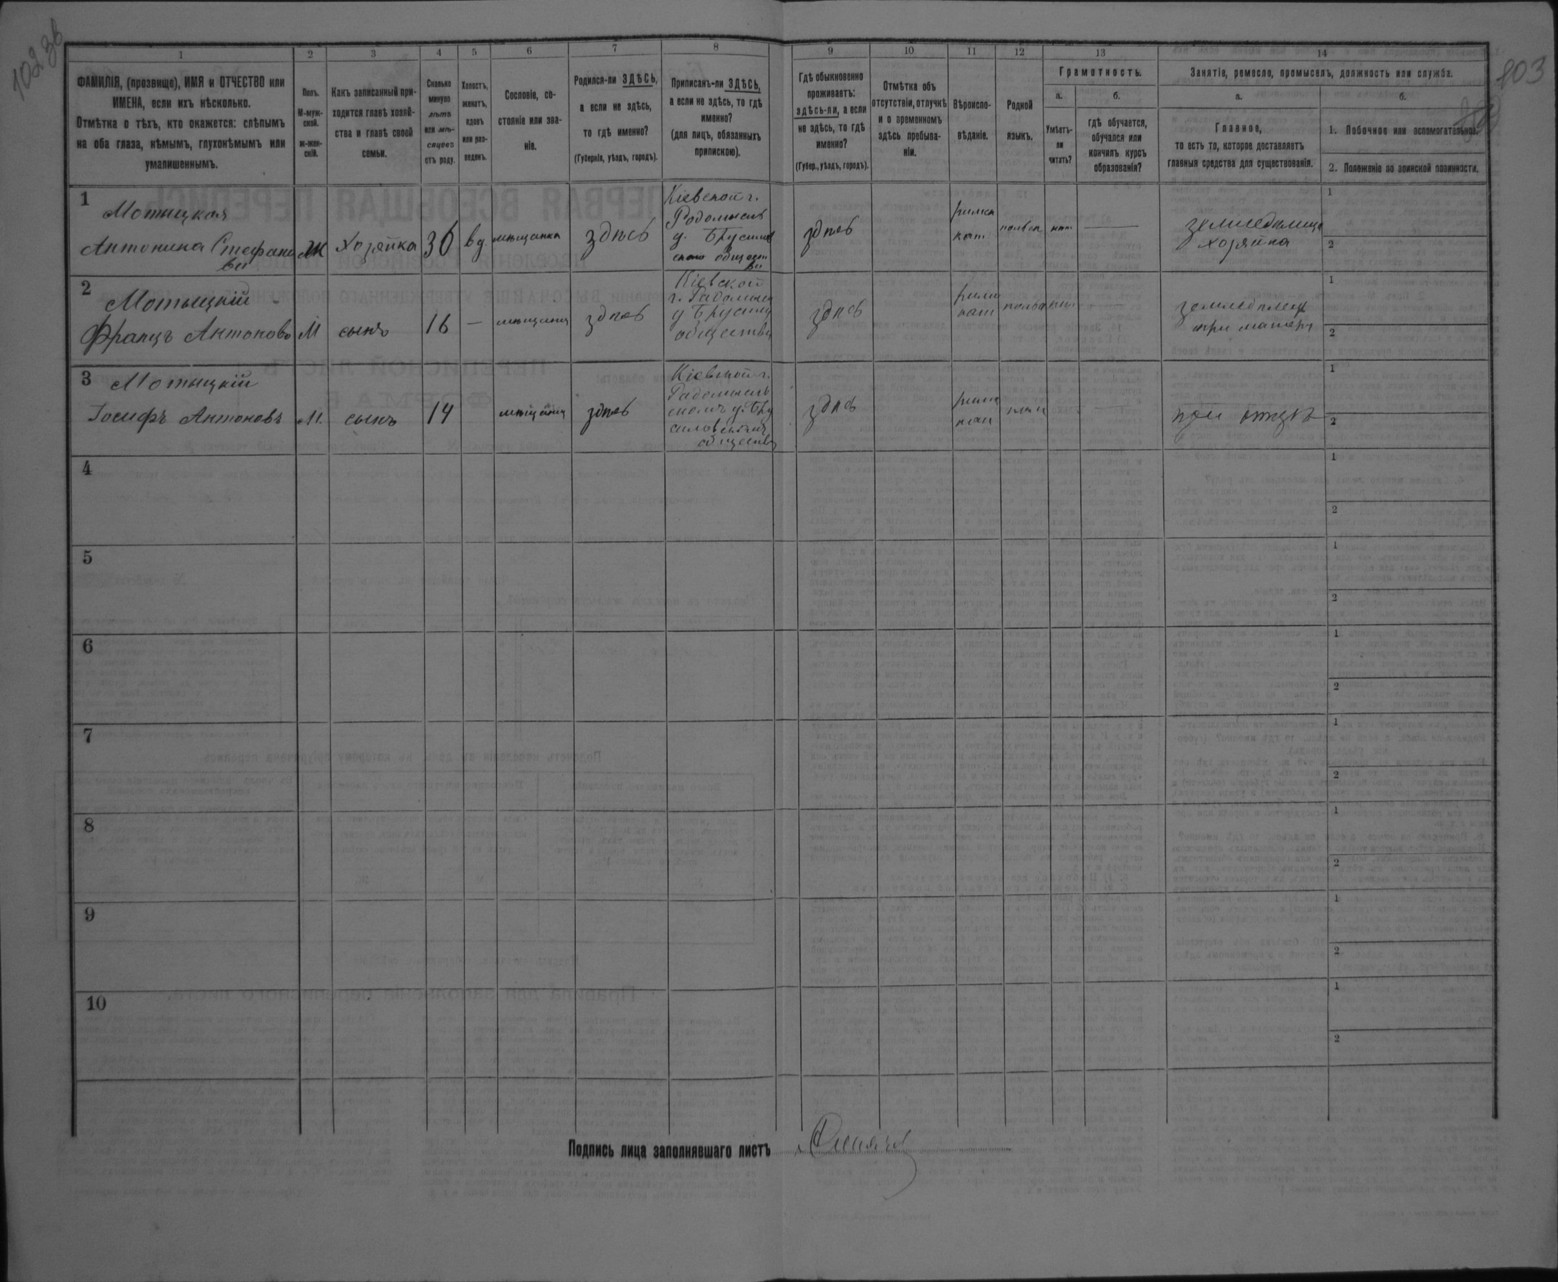 803
1
2
3
4
5
6
7
8
9
10
11
12
13
14
ФАМИЛІЯ, (прозвище), ИМЯ и ОТЧЕСТВО или
ИМЕНА, если ихъ нѣсколько.
Отмѣтка о тѣхъ, кто окажется: слѣпымъ
на оба глаза, нѣмымъ, глухонѣмымъ или
умалишеннымъ.
Полъ.
М-муж-
ской.
ж-жен-
скій.
Какъ записанный при-
ходится главѣ хозяй-
ства и главѣ своей
семьи.
Сколько
минуло
лѣтъ
или мѣ-
сяцевъ
отъ роду.
Холостъ,
женатъ,
вдовъ
или раз-
веденъ.
Сословіе, со-
стояніе или зва-
ніе.
Родился-ли ЗДѢСЬ,
а если не здѣсь,
то гдѣ именно?
(Губернія, уѣздъ, городъ).
Приписанъ-ли ЗДѢСЬ,
а если не здѣсь, то гдѣ
именно?
(для лицъ, обязанныхъ
припискою).
Гдѣ обыкновенно
проживаетъ:
здѣсь-ли, а если
не здѣсь, то гдѣ
именно?
(Губер., уѣздъ, городъ).
Отмѣтка объ
отсутствіи, отлучкѣ
и о временномъ
здѣсь пребыва-
ніи.
Вѣроиспо-
вѣданіе.
Родной
языкъ.
Грамотность.
а.
Умѣетъ-
ли
читать?
б.
гдѣ обучается,
обучался или
кончилъ курсъ
образованія?
Занятіе, ремесло, промыселъ, должность или служба.
а.
Главное,
то есть то, которое доставляетъ
главныя средства для существованія.
б.
1. Побочное или вспомогательное.
2. Положеніе по воинской повинности.
1
Мотыцкая
Антонина Стефано
ва
Ж
хозяйка
36
вд
мѣщанка
здѣсь
Кіевской г.
Радомысл
у. Брусил
скаго общест
ва
здѣсь
римск
кат
польск
нет
земледѣлица
хозяйка
1
2
2
Мотыцкій
Францъ Антоновъ
М
сынъ
16
—
мѣщанин
здѣсь
Кіевской
г. Радомысл
у Брусил
общества
здѣсь
римс
кат
земледѣлец
при матери
1
2
3
Мотыцкій
Іосифъ Антоновъ
М.
сынъ
14
мѣщанин
здѣсь
Кіевской г.
Радомысль
скаго у. Бру
силовскаго
общества
здѣсь
римс
кат
при
1
2
4
1
2
5
1
2
6
1
2
7
1
2
8
1
2
9
1
2
10
1
2
Подпись лица заполнявшаго листъ